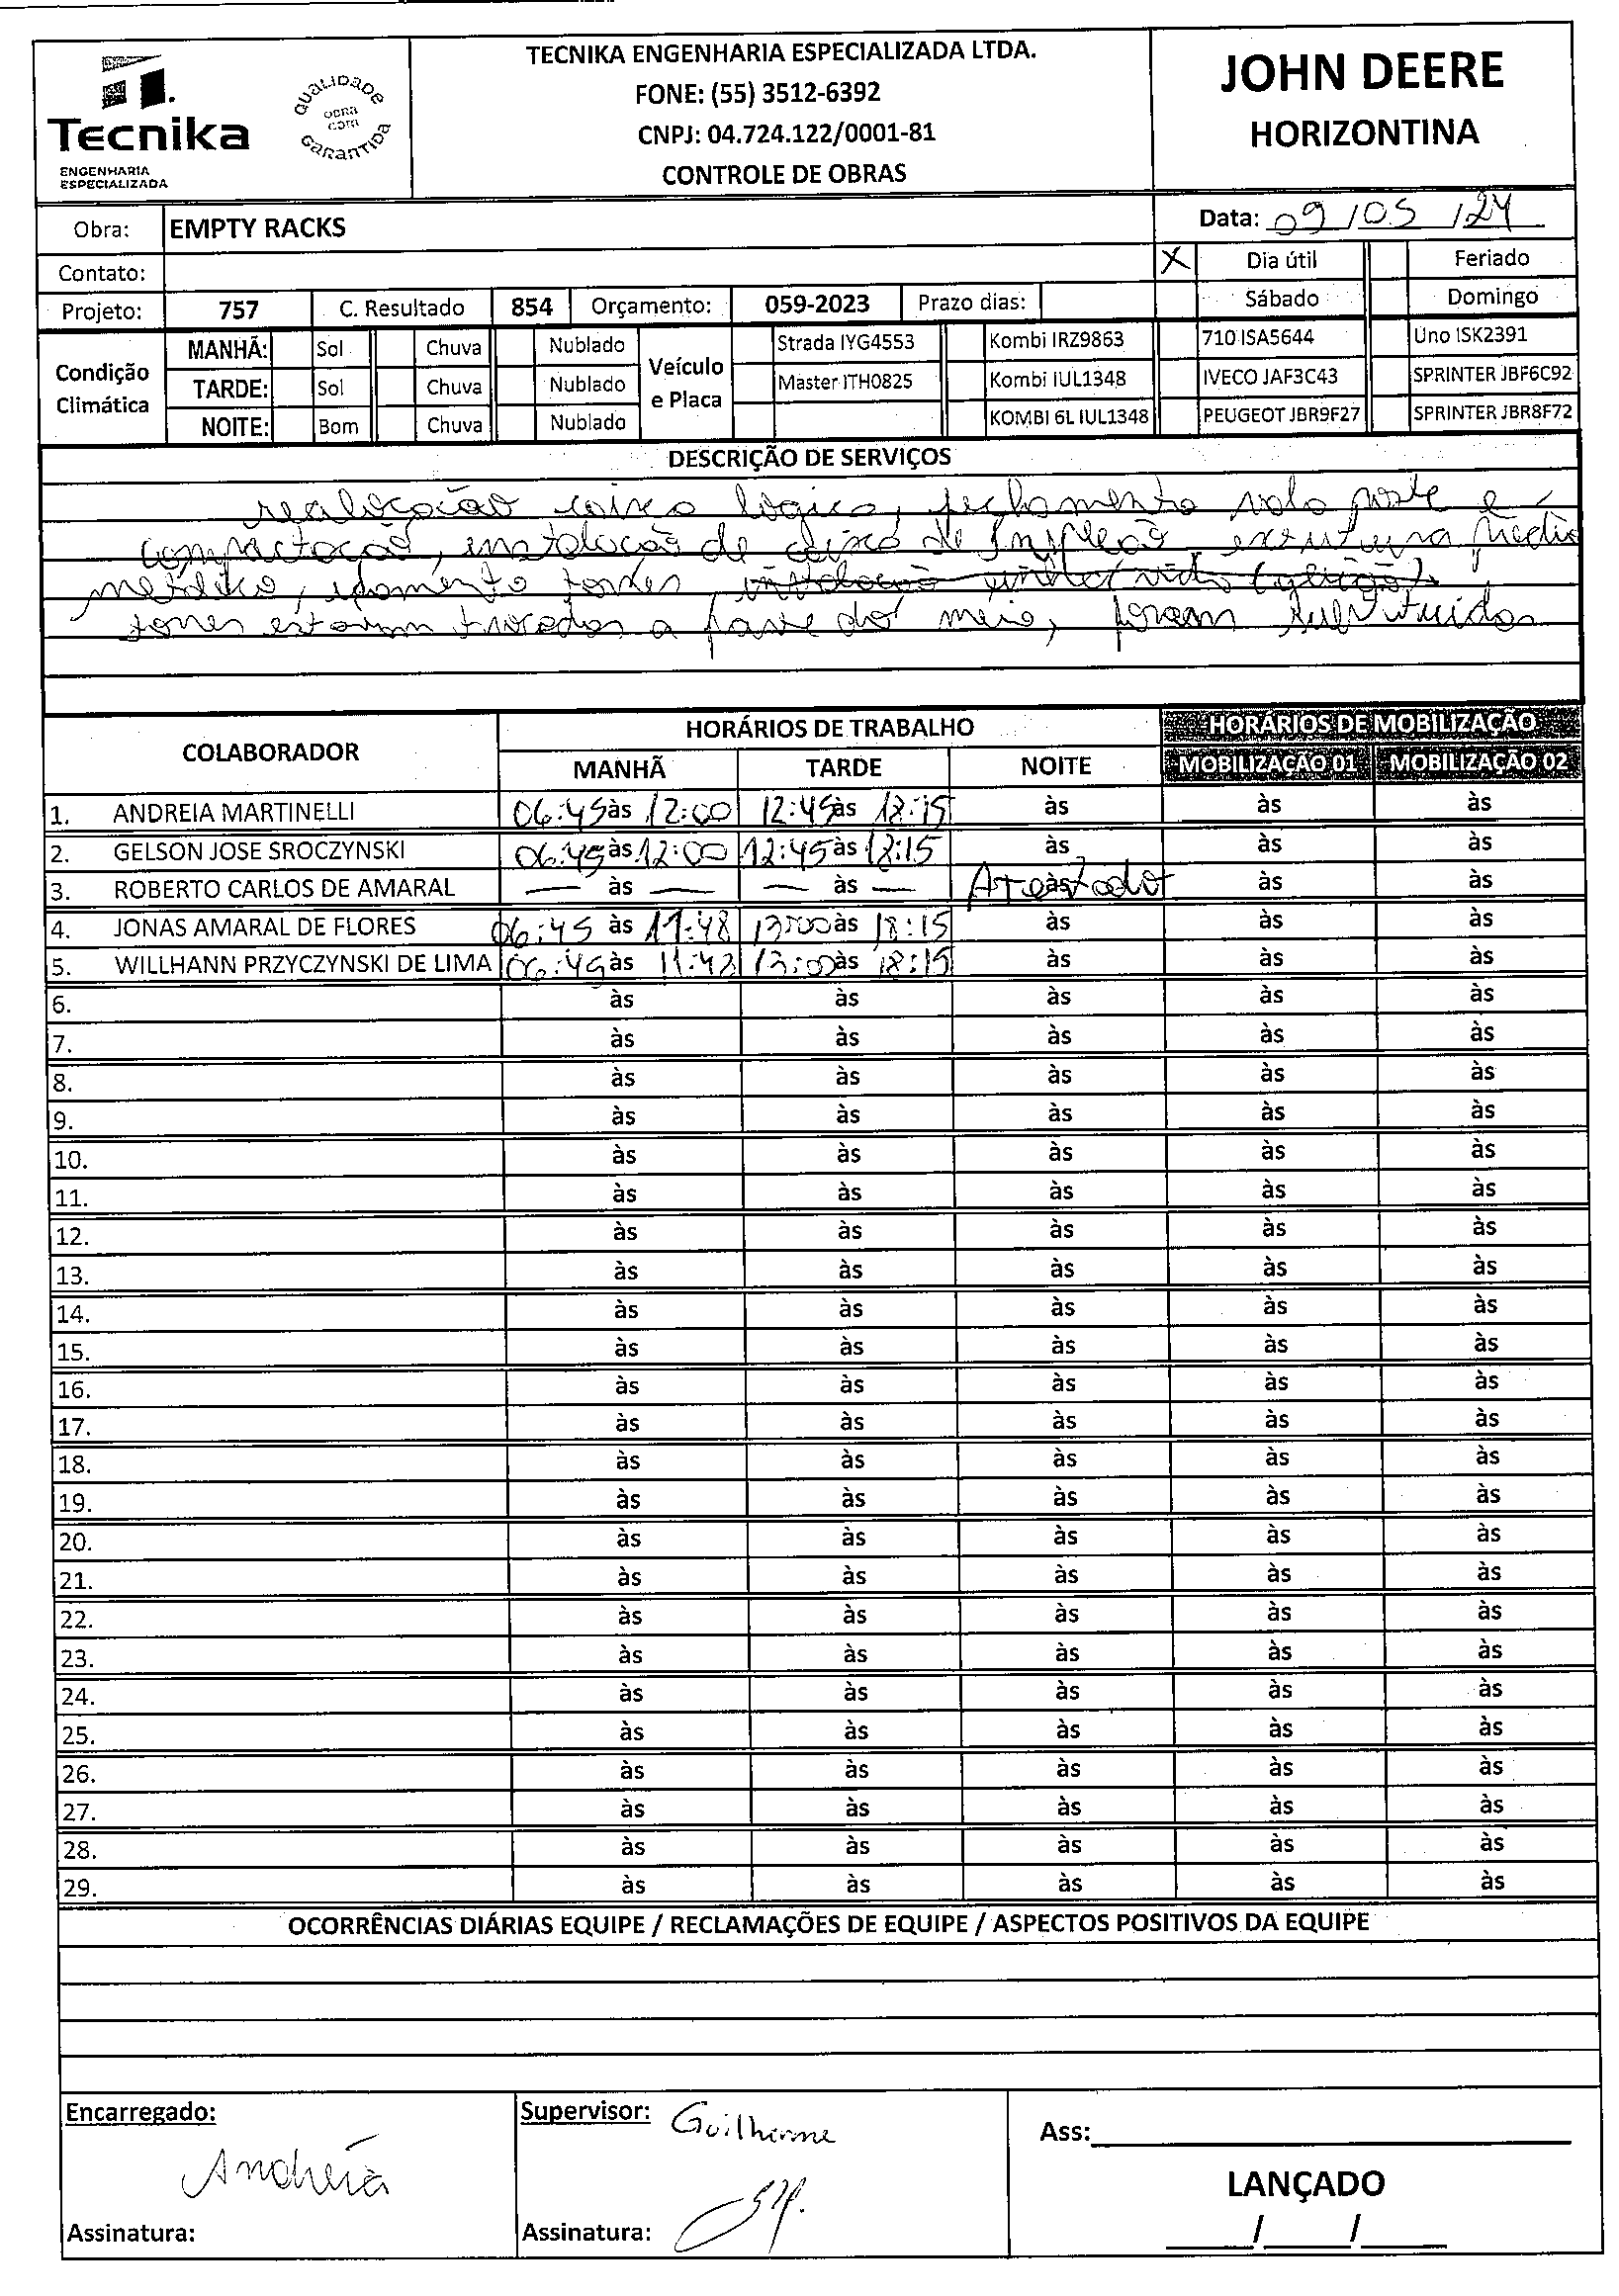 Tecnika
ENGENHARIA
ESPECIALIZADA
QUALIDADE
OBRA
COM
GARANTIDA
TECNIKA ENGENHARIA ESPECIALIZADA LTDA.
FONE: (55) 3512-6392
CNPJ: 04.724.122/0001-81
CONTROLE DE OBRAS
JOHN DEERE
HORIZONTINA
Obra: EMPTY RACKS Data: 09/05/24
Contato: X Dia útil Feriado
Projeto: 757 C. Resultado 854 Orçamento: 059-2023 Prazo dias: Sábado Domingo
Condição Climática
MANHÃ: Sol Chuva Nublado
TARDE: Sol Chuva Nublado
NOITE: Bom Chuva Nublado
Veículo e Placa
Strada IYG4553 Kombi IRZ9863 710 ISA5644 Uno ISK2391
Master ITH0825 Kombi IUL1348 IVECO JAF3C43 SPRINTER JBF6C92
KOMBI 6L IUL1348 PEUGEOT JBR9F27 SPRINTER JBR8F72
DESCRIÇÃO DE SERVIÇOS
realocação caixa lógica, fechamento vala poste e
compactação, instalação de caixa de Inspeão estrutura prédio
metálico, tomes
estavam trocados a parte do meio, foram substituidos
COLABORADOR HORÁRIOS DE TRABALHO HORÁRIOS DE MOBILIZAÇÃO
MANHÃ TARDE NOITE MOBILIZACÃO 01 MOBILIZACÃO 02
1. ANDREIA MARTINELLI 06:45 às 12:00 12:45 às 18:15 às às às
2. GELSON JOSE SROCZYNSKI 06:45 às 12:00 12:45 às 18:15 às às às
3. ROBERTO CARLOS DE AMARAL — às — — às — às Atestado às às
4. JONAS AMARAL DE FLORES 06:45 às 11:48 13:00 às 18:15 às às às
5. WILLHANN PRZYCZYNSKI DE LIMA 06:45 às 11:42 13:00 às 18:15 às às às
6. às às às às às
7. às às às às às
8. às às às às às
9. às às às às às
10. às às às às às
11. às às às às às
12. às às às às às
13. às às às às às
14. às às às às às
15. às às às às às
16. às às às às às
17. às às às às às
18. às às às às às
19. às às às às às
20. às às às às às
21. às às às às às
22. às às às às às
23. às às às às às
24. às às às às às
25. às às às às às
26. às às às às às
27. às às às às às
28. às às às às às
29. às às às às às
OCORRÊNCIAS DIÁRIAS EQUIPE / RECLAMAÇÕES DE EQUIPE / ASPECTOS POSITIVOS DA EQUIPE
Encarregado: Supervisor: Guilherme Ass:
Andréia
LANÇADO
Assinatura: Assinatura: / /